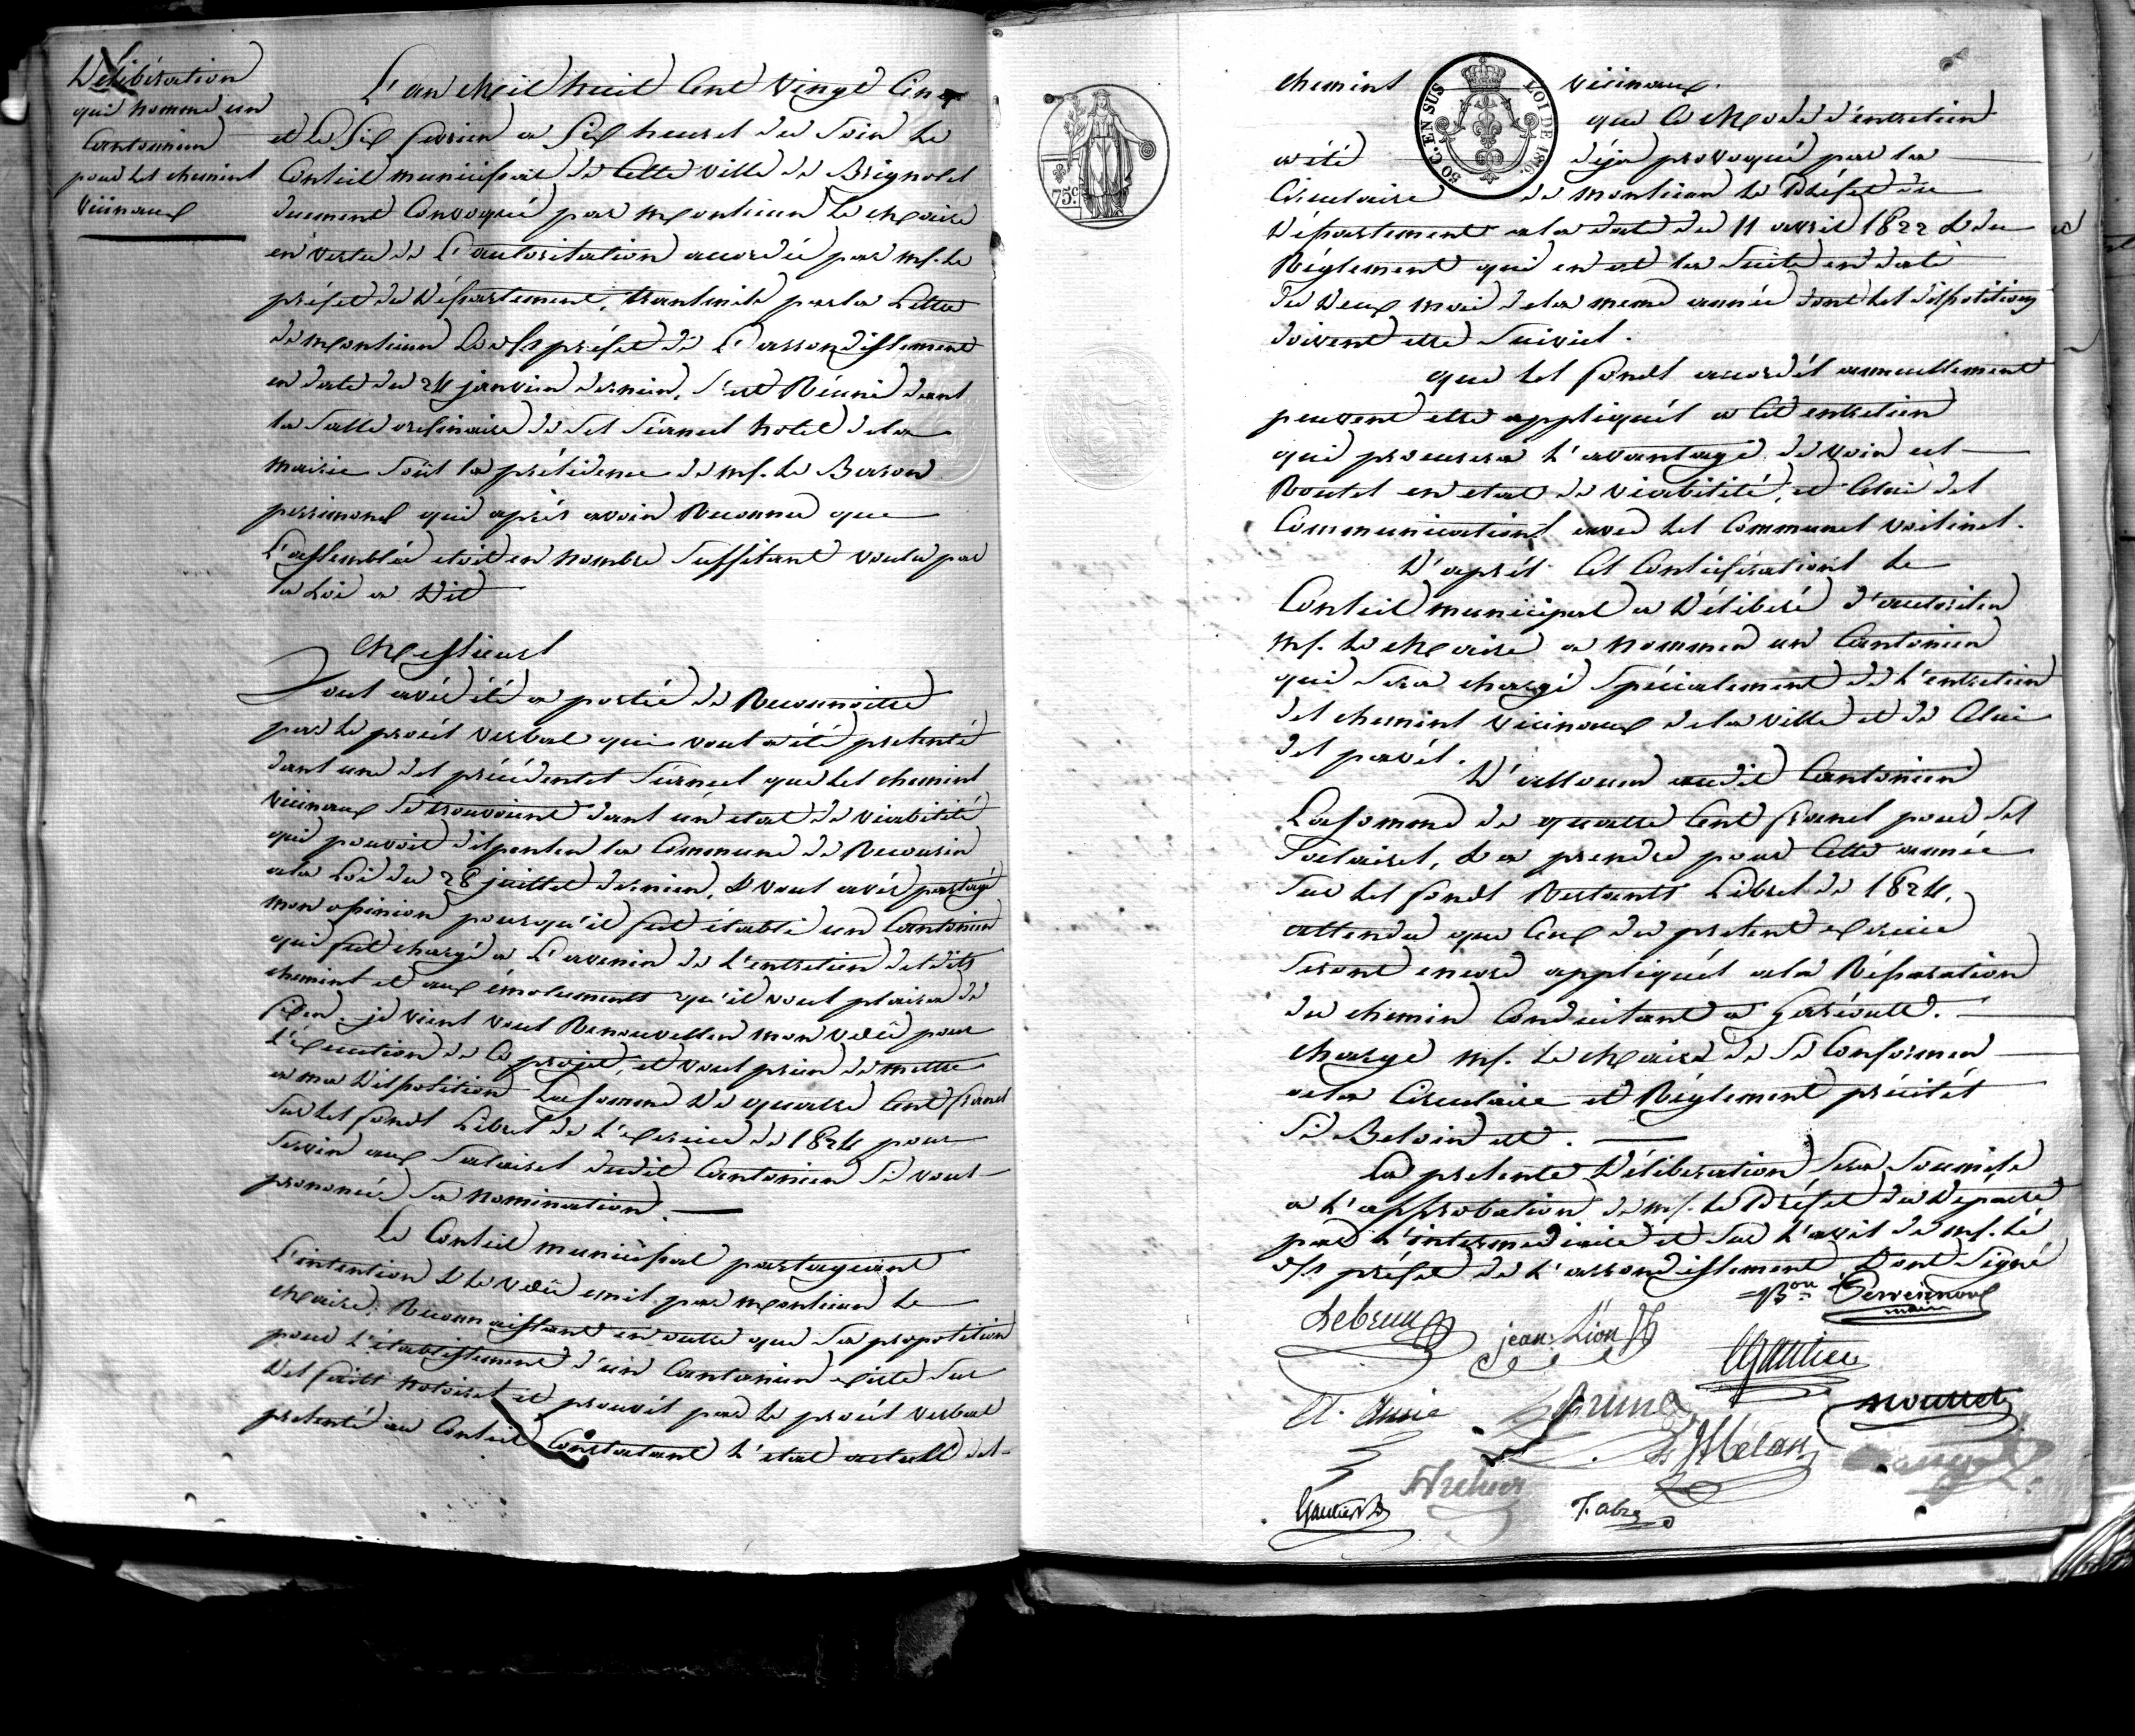 Délibération
qui nomme un
Cantonnier
pour les chemins
vicinaux
L'an Mil huit Cent Vingt Cinq
et le Six fevrier a Six heures du Soir le
Conseil municipal de Cette ville de Brignoles
duement Convoqué par Monsieur le Maire
en vertu de l'autorisation accordée par mr. le
préfet du Département, transmise par la Lettre
de Monsieur le Ss préfet de l'arrondissement
en date du 24 janvier dernier, s'est Réuni dans
la Salle ordinaire de Ses Séances hotel de la
mairie Sous la présidence de mr. le Baron
perrimond qui après avoir Reconnu que
l'assemblée etoit en nombre Suffisant voulu par
la Loi a Dit
Messieurs
Vous avés été a portée de Reconnoitre
par le procès verbal qui vous a été presenté
dans une des précédentes Séances que les chemins
vicinaux Se trouvoient dans un etat de viabilité
qui pouvoit dispenser la Commune de Recourir
a la Loi du 28 juillet dernier, & vous avés partagé
mon opinion pour qu'il fut établi un Cantonier
qui fut chargé a l'avenir de l'entretien desdits
chemins et aux émoluments qu'il vous plaira de
fixer. je viens vous Renouveller mon voeü pour
l'éxecution de Ce projet, et vous prier de mettre
a ma Disposition La somme De quatre Cent francs
Sur les fonds Libres de l'Exercice de 1824 pour
Servir aux Salaires dudit Cantonier Si vous
prononcés Sa nomination.
Le Conseil municipal partageant
l'intention & le voeü emis par Monsieur le
Maire. Reconnaissant en outre que Sa proposition
pour l'établissement d'un Cantonier existe Sur
Des faits notoires et prouvés par le procés verbal
presenté au Conseil Constatant l'etat actuel des
chemins vicinaux.
que Ce Mode d'éntretien
a été déja provoqué par la
Circulaire de Monsieur le Préfet du
Département a la date du 11 avril 1822 & du
Réglement qui en est la Suite en date
du Deux mai de la meme année dont les dispositions
doivent etre Suivies.
que les fonds accordés annuellement
peuvent etre appliqués a Cet entretien
qui procurera l'avantage de voir ces
Routes en etat de viabilité, et Celui des
Communications avec les Communes voisines.
D'aprés Ces Considérations le
Conseil municipal a Déliberé d'autoriser
mr. le Maire a nommer un Cantonier
qui Sera chargé Spécialement de l'entretien
des chemins vicinaux de la ville et de Celui
des pavés.
D'allouer audit Cantonier
La somme de quatre Cent francs pour Ses
Salaires, & a prendre pour Cette année
Sur les fonds Restants Libres de 1824,
attendu que Ceux du present exercice
Seront encore appliqués a la Réparation
du chemin Conduisant a Garéoult.
charge mr. le Maire de Se Conformer
a la Circulaire et Réglement précités
Si Besoin est.
La presente Déliberation Sera Soumise
a l'approbation de mr. le Préfet du Départt
par l'intermediaire et Sur l'avis de mr. le
Ss préfet de l'arrondissement & ont Signé
Bon Perrimond
maire
Lebrun
jean Lion
Gautier
Brun
mourret
Gautier
Fabre
50 C. EN SUS
LOI DE 1816.
75c.